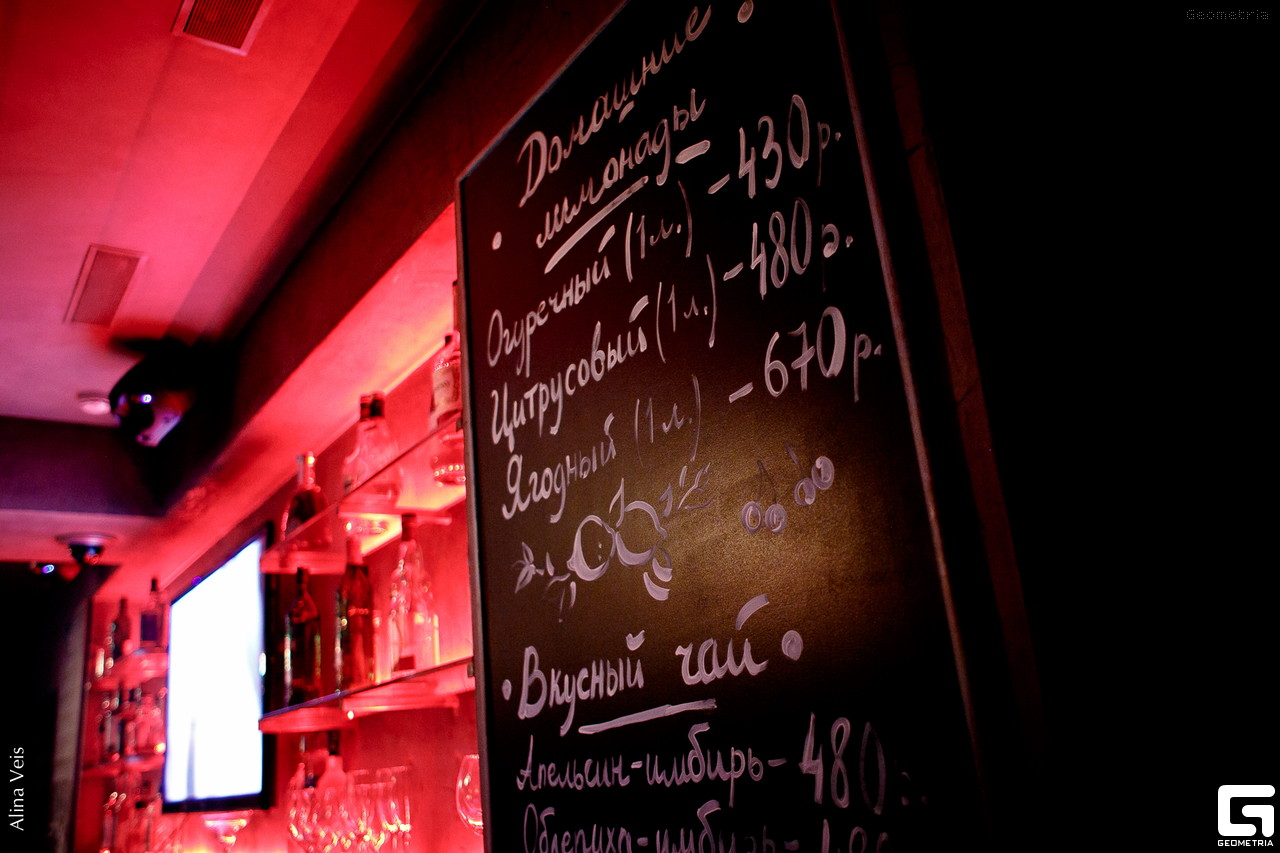 Geometria
Домашние
лимонады
Огуречный (1 л.) - 430 р.
Цитрусовый (1 л.) - 480 р.
Ягодный (1 л.) - 670 р.
Вкусный чай
Апельсин-имбирь - 480
Облепиха-имбирь -
Alina Veis
GEOMETRIA